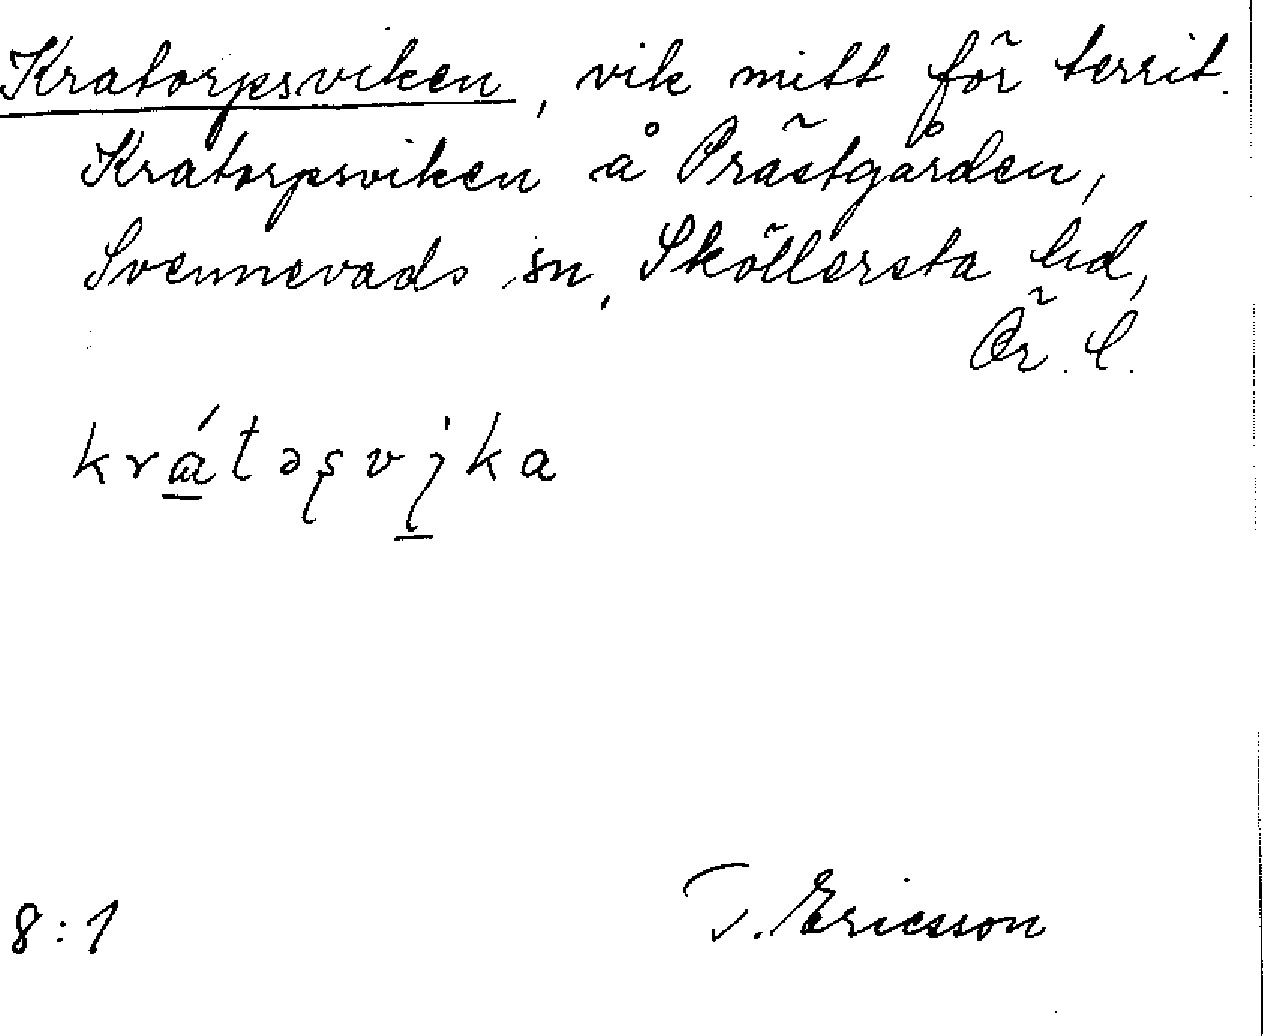 Kratorpsviken, vik mitt för territ.
Kratorpsviken å Prästgården,
Svennevads sn, Sköllersta hd,
Ör. l.
krɑ́təʂvi̯ka
8:1
T. Ericsson